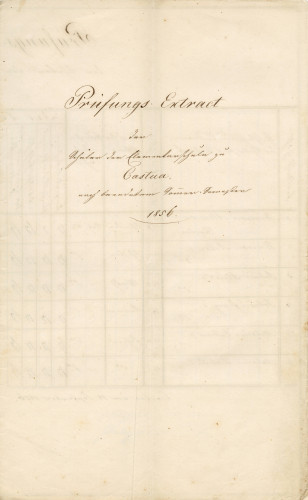 Prüfungs Extract
der
Schüler der Elementarschule zu
Castua
nach beendetem Sommer-Semester
1856